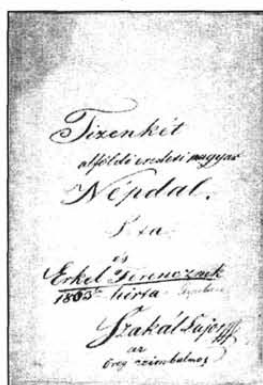 Tizenkét
alföldi eredeti magyar
Népdal.
és
Erkel Ferencznek
hirta
Szakál Lajos
az
öreg czimbalmos